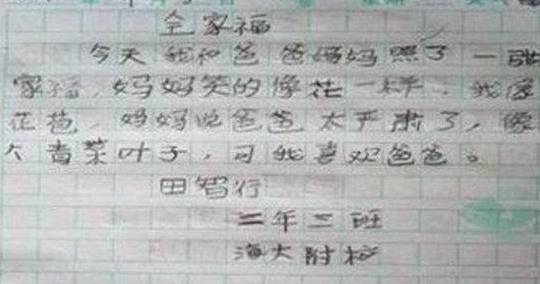 全家福
今天我和爸爸妈妈照了一张
家福，妈妈笑的像花一样，我像
花苞，妈妈说爸爸太严肃了，像
大青菜叶子，可我喜欢爸爸。
田智行
二年二班
海大附校